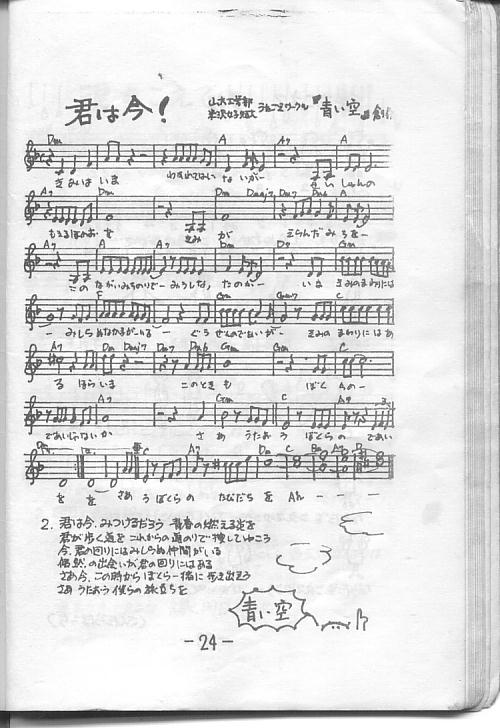 君は今!
山大工学部
米沢女子短大 うたごえサークル『青い空』創作
Dm A A7 A
きみはいま わすれてはいないかー せいしゅんの
A7 Dm Dm Dmaj7 Dm7 Dm6 A
もえるほのお を きみ が えらんだみちを－
A7 Dm A A7 A7 Dm D7 Gm
このながいみちのりでー みうしな
F Gm Gmm7 C
－みしらぬなかまがーいるー ぐうぜんのであいがー きみのまわりにはあ
A7 Dm Dmaj7 Dm7 Dm6 Gm C
る ほらいま このときも ぼくらの－
A7 Gm C A7 3
であいじゃないか さあ うたおう ぼくらの であい
C A7 Dm C
を を さあ うぼくらの たびだちを Ah － － －
2. 君は今、みつけるだろう 青春の燃える道を
君が歩く道を これからの道のりで 捜してゆこう
今、君の回りにはみしらぬ仲間がいる
偶然の出会いが君の回りにはある
さあ今、この時からぼくら一緒に 歩き出そう
さあ うたおう 僕らの旅立ちを
青い空
－24－